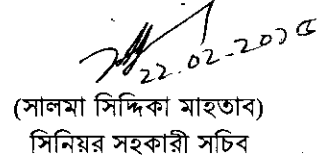 22.02.2018
(সালমা সিদ্দিকা মাহতাব)
সিনিয়র সহকারী সচিব